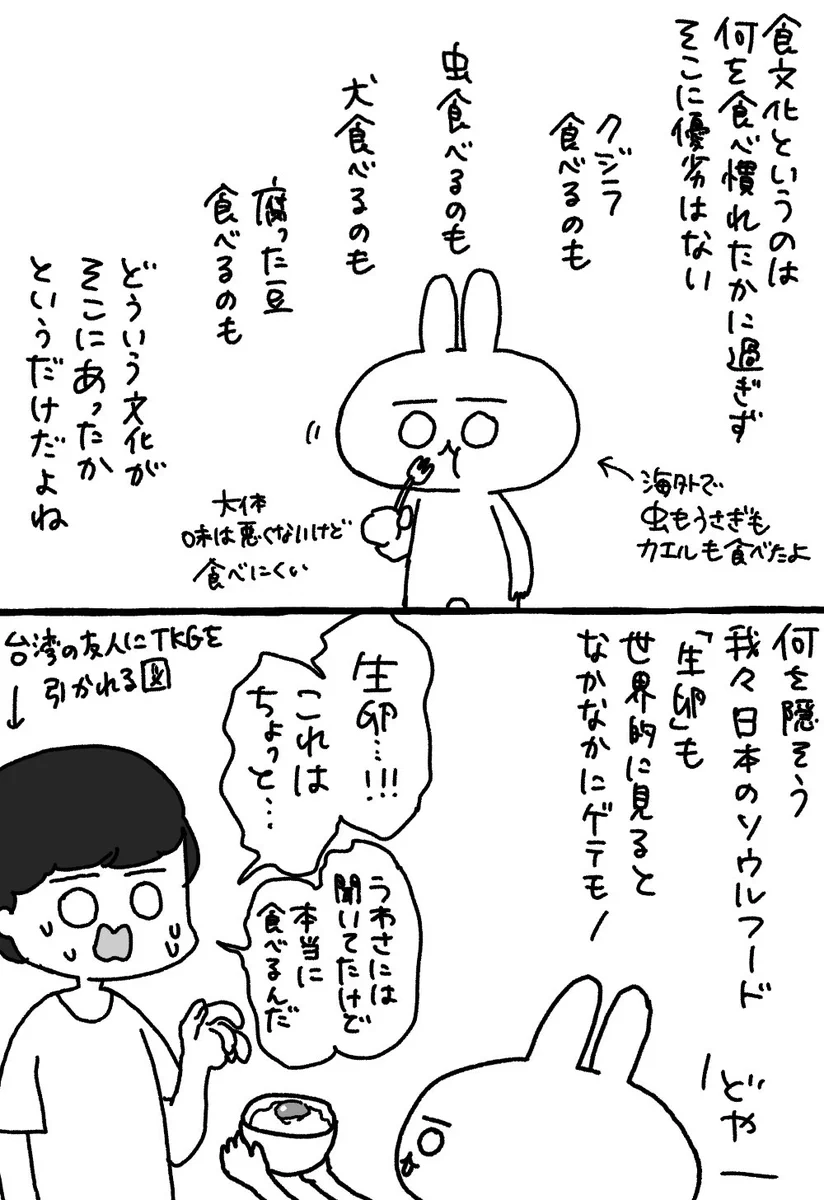 食文化というのは
何を食べ慣れたかに過ぎず
そこに優劣はない
クジラ
食べるのも
虫食べるのも
犬食べるのも
腐った豆
食べるのも
どういう文化が
そこにあったか
というだけだよね
海外で
虫もうさぎも
カエルも食べたよ
大体
味は悪くないけど
食べにくい
何を隠そう
我々日本のソウルフード
「生卵」も
世界的に見ると
なかなかにゲテモノ
どやー
生卵…!!!
これは
ちょっと…
うわさには
聞いてたけど
本当に
食べるんだ
台湾の友人にTKGを
引かれる図